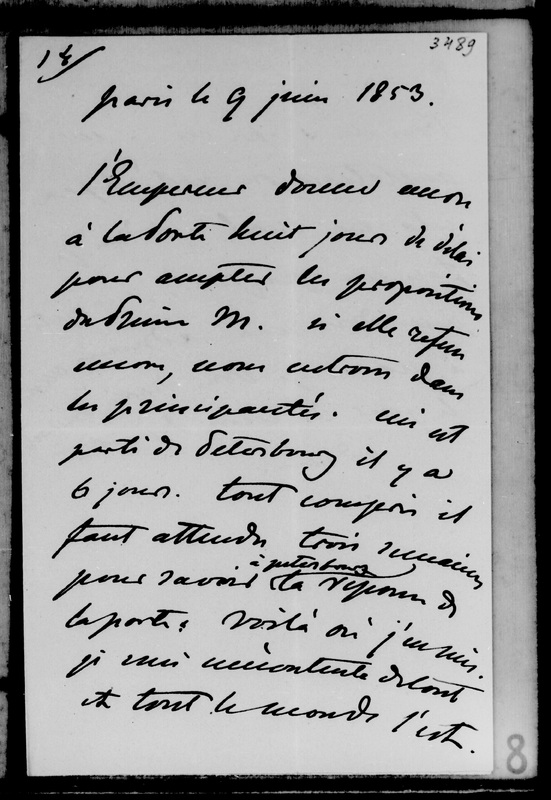 18/
3489
paris le 9 juin 1853.
l'Empereur donne encore
à la Porte huit jours de délai
pour accepter les propositions
du Prince M. si elle refuse
encore, nous entrons dans
les principautés. ceci est
parti de Petersbourg il y a
6 jours. tout compris il
faut attendre trois semaines
à petersbourg
pour savoir la réponse de
la porte. voilà où j'en suis.
je suis mécontente de tout
et tout le monde l'est.
8